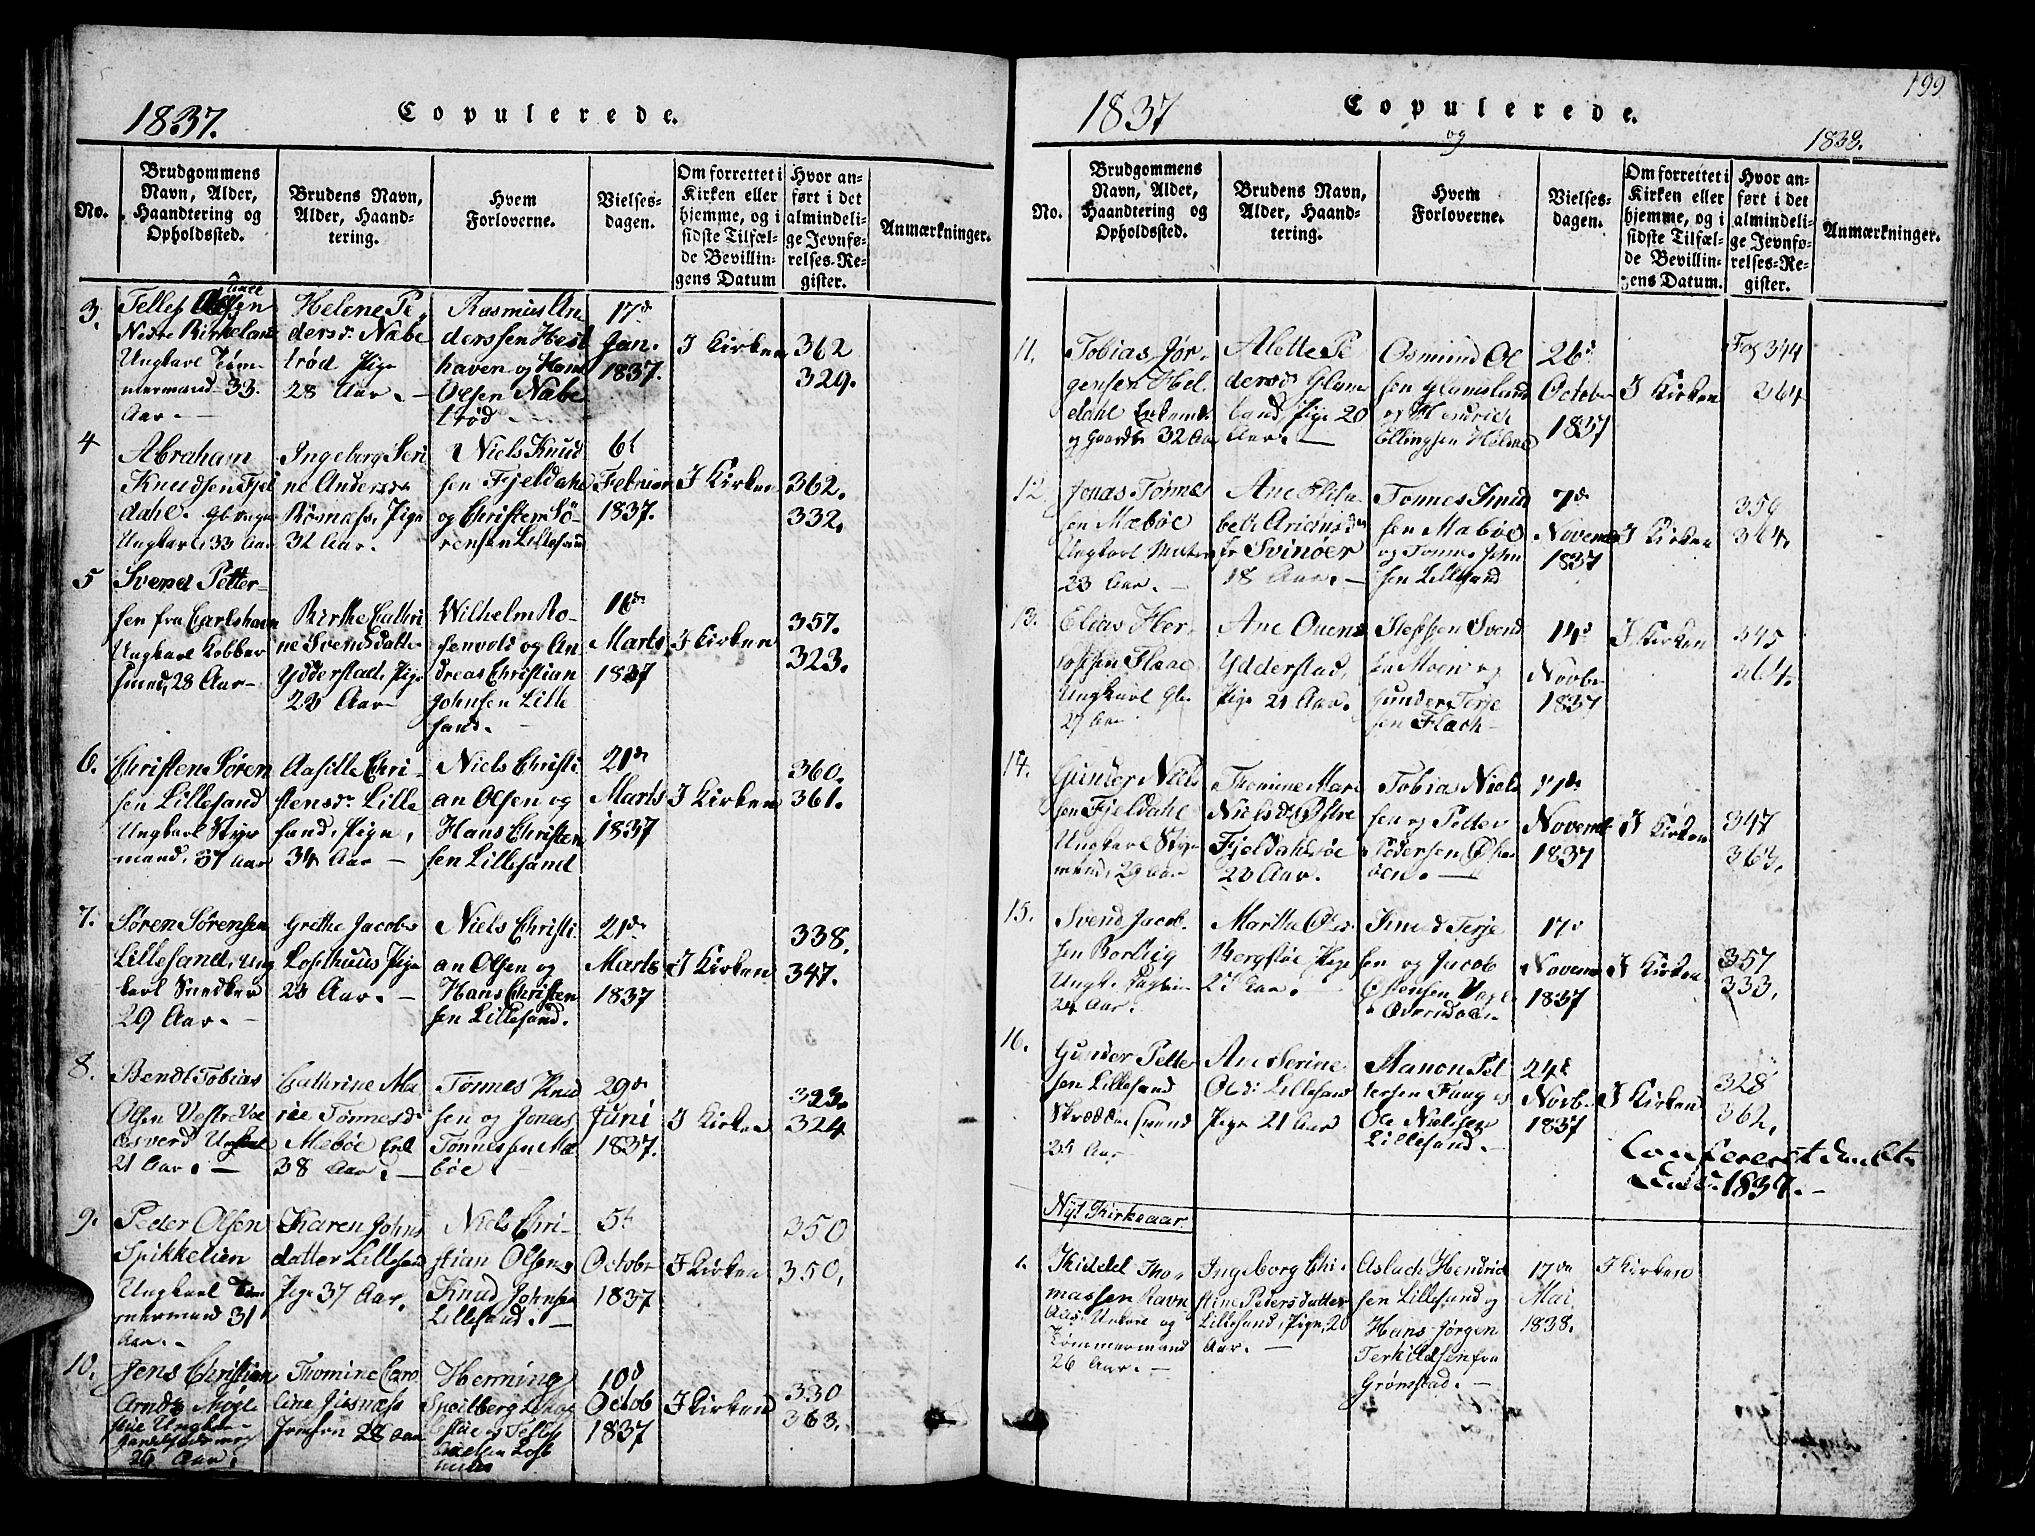 1837.
Copulerede.
No.
Brudgommens
Navn, Alder,
Haandtering og
Opholdssted.
Brudens Navn,
Alder, Haand-
tering.
Hvem
Forloverne.
Vielses-
dagen.
Om forrettet i
Kirken eller
hjemme, og i
sidste Tilfæl-
de Bevillin-
gens Datum
Hvor an-
ført i det
almindeli-
ge Jevnfø-
relses-Re-
gister.
Anmærkninger.
3.
Tellef
Nedre Birkeland
Ungkarl Tøm-
mermand 33.
Aar.
Helene Pe-
dersd. Nabe
trød Pige
28 Aar.
Rasmus An
derssen Hest
haven og
Olsen Nabe
trød
17d
Jan.
1837.
I Kirken
362
329.
4
Abraham
Knudsen Fjel
dahl.
Ungkarl, 33 Aar
Ingeborg Seri
ne Andersdr
Røsnæss, Pige
32 Aar.
Niels Knud
sen Fjeldahl
og Christen Sö-
rensen Lillesand
6t
Februar
1837.
I Kirken
362.
332.
5
Svend Petter-
sen fra Carlshavn
Ungkarl Kobber
smed, 28 Aar
Birthe Cathri
ne Svendsdatter
Ydderstad, Pige
23 Aar
Wilhelm Ro-
senvold og An
dreas Christian
Johnsen Lille
sand.
16de
Marts
1837
I Kirken
357.
323.
6.
Christen Sören
sen Lillesand
Ungkarl Styr
mand, 37 Aar
Aasille Chri-
stensdr. Lille
sand, Pige,
34 Aar
Niels Christi
an Olsen og
Hans Christen
sen Lillesand
21de
Marts
1837
I Kirken
360.
361.
7.
Sören Sörensen
Lillesand, Ung
karl Snedker
29 Aar.
Grethe Jacobs
Losthuus Pige
23 Aar.
Niels Christi
an Olsen og
Hans Christen
sen Lillesand.
21de
Marts
1837
I Kirken
338.
347.
8.
Bendt Tobias
Olsen Vestre Val
Ungkarl
21 Aar.
Cathrine Ma
rie Tønnesd
Mæbøe Enk
38 Aar.
Tønnes Knud
sen og Jonas
Tønnesen Mæ
bøe
29de
Juni
1837.
I Kirken
323.
324
9.
Peder Olsen
Spikkelien
Ungkarl Töm
mermand 31
Aar.
Karen Johns
datter Lillesand
Pige 37 Aar.
Niels Chri-
stian Olsen og
Knud Johnsen
Lillesand.
5t
Octobr
1837
I Kirken
350
350.
10.
Jens Christian
26 Aar.
Thomine Caro
line
28 Aar
Henning
10d
Octob
1837
I Kirken
330
363.
199
1837
Copulerede.
og
1838.
No.
Brudgommens
Navn, Alder,
Haandtering og
Opholdssted.
Brudens Navn,
Alder, Haand-
tering.
Hvem
Forloverne.
Vielses-
dagen.
Om forrettet i
Kirken eller
hjemme, og i
sidste Tilfæl-
de Bevillin-
gens Datum.
Hvor an-
ført i det
almindeli-
ge Jevnfø-
relses-Re-
gister.
Anmærkninger.
11.
Tobias Jør-
gensen Hel
dahl Enkem.
og Gaardbr 32 Aar
Alette Pe
dersdr Glam
land, Pige 20
Aar.
Osmund Ol
sen Glamsland
og Hendrick
Ellingsen Holme
26d
October
1837
I Kirken
Fol 344
364
12.
Jonas Tønnes
sen Mæbøe
Ungkarl
23 Aar.
Ane Elisa
beth
fr Svinöer
18 Aar.
Tønnes Knud
sen Mæbøe
og Tønnes John
sen Lillesand
7de
Novembr
1837
I Kirken
359
364.
13.
Elias Her
Flaae
Ungkarl
27 Aar
Ane Ouens
Ydderstad,
Pige 21 Aar.
Steffen Svend
sen Moen og
Gunder Terje
sen Flach
14d
Novbr
1837
I Kirken
345
364.
14.
Gunder Niels
sen Fjeldahl
Ungkarl Styr
mand, 29 Aar
Thomine Mari
Nielsdr Østre
Fjeldahlsøe
23 Aar.
Tobias Niels
sen og Petter
Pedersen
øen.
Novembr
1837
I Kirken
347
363.
15.
Svend Jacob
sen
Ungk.
24 Aar.
Marthe Ols
Bergstøe Pige
27 Aar.
Knud Terje
sen og Jacob
17d
Novem
1837
I Kirken
357
333.
16.
Gunder Petter
sen Lillesand
35 Aar
Ane Serine
Olsd. Lillesand
Pige 21 Aar
Manon Pet
tersen Faag og
Ole Nielsen
Lillesand.
24d
Novb.
1837
I Kirken
328
362.
Confereret den
1837.
Nyt Kirkeaar.
1.
Kiddel Tho-
massen Ravn
Aas, Unkarl og
Tømmermand
26 Aar.
Ingeborg Chri
stine Pedersdatter
Lillesand, Pige, 20
Aar.
Aslach Hendrich
sen Lillesand og
Hans Jørgen
Terkildsen fra
Grømstad.
17de
Mai.
1838.
I Kirken